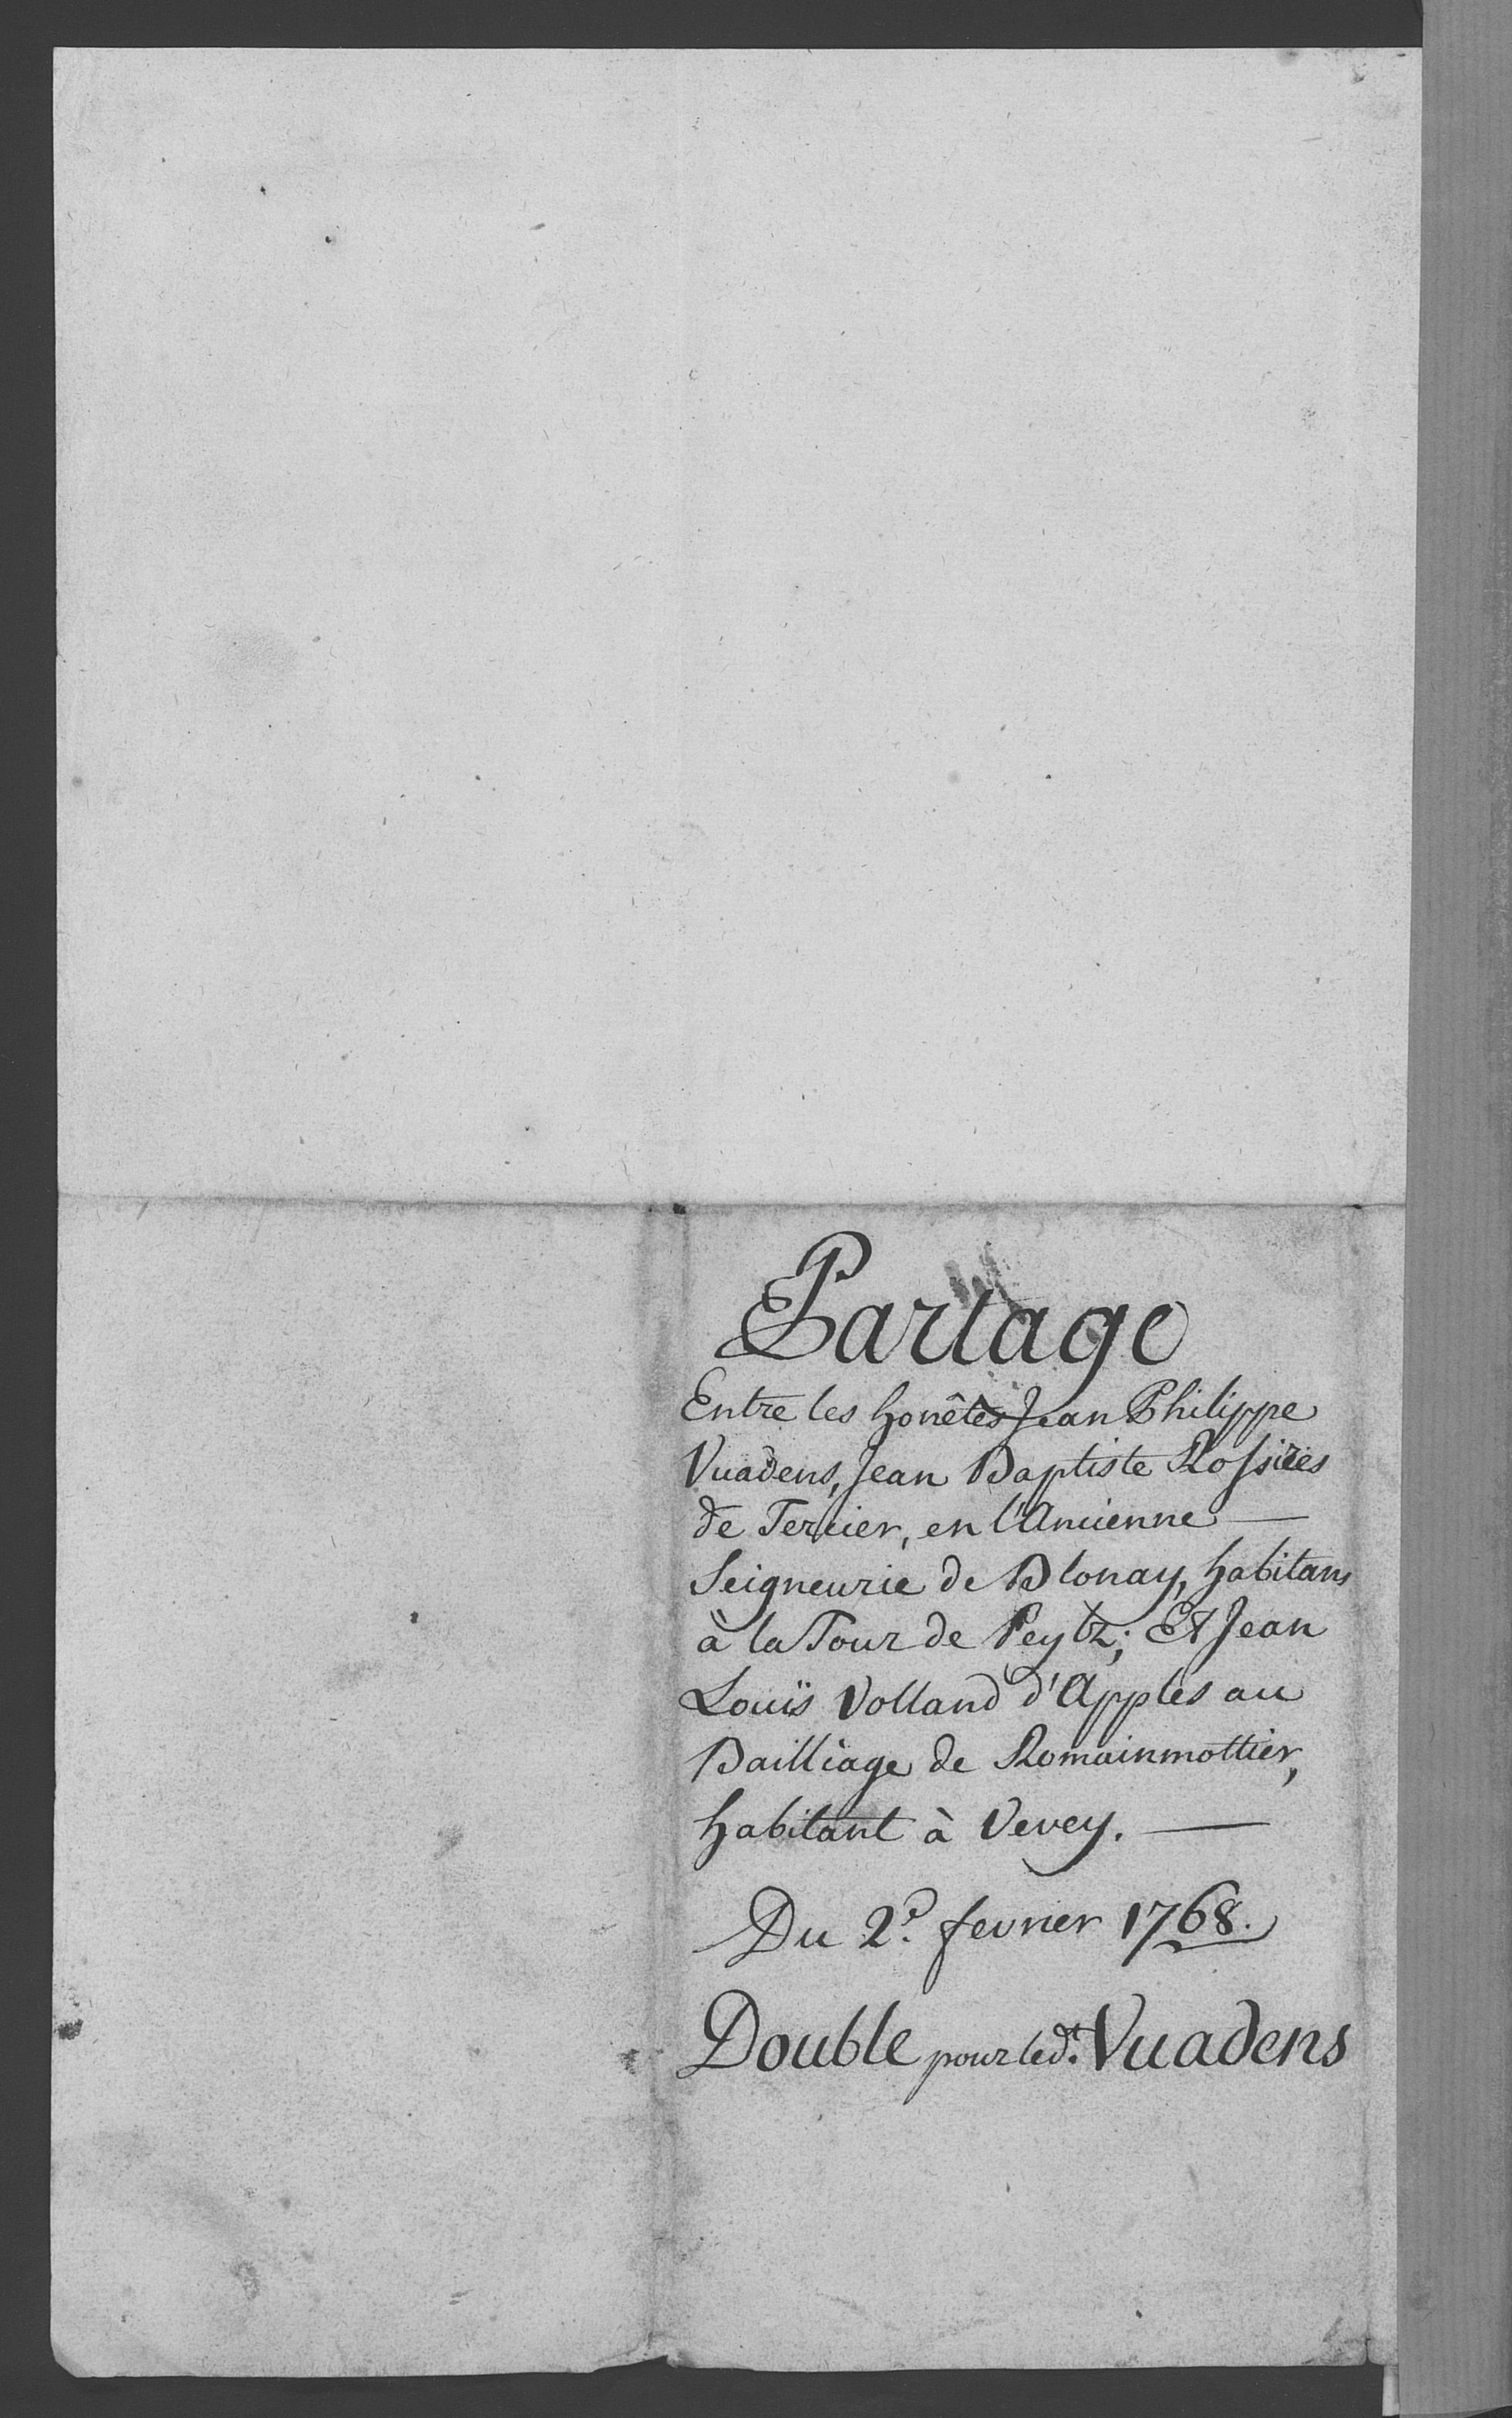 Partage
Entre les honêtes Jean Philippe
Vuadens, Jean Baptiste Rossires
de Tercier, en l'Ancienne —
Seigneurie de Blonay, habitans
à la Tour de Peytz; Et Jean
Louïs Volland d'Apples au
Bailliage de Romainmottier,
habitant à Vevey. —
Du 2e. fevrier 1768.
Double pour led.t Vuadens